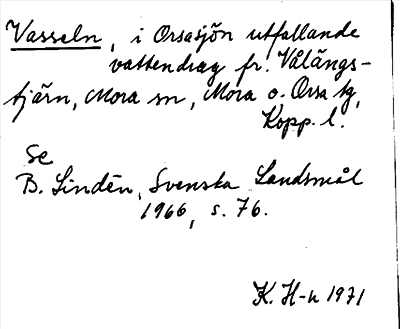 Vasseln, i Orsasjön utfallande
vattendrag fr. Vålängs-
tjärn, Mora sn, Mora o. Orsa tg,
Kopp. l.
Se
B. Lindén, Svenska Landsmål
1966, s. 76.
K. H-n 1971